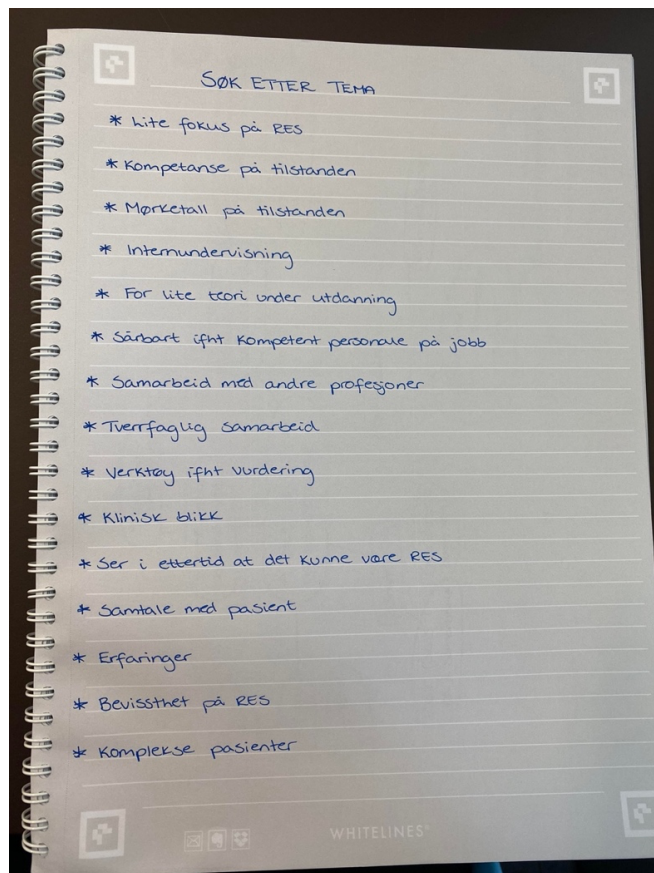 SØK ETTER TEMA
* Lite fokus på RES
* Kompetanse på tilstanden
* Mørketall på tilstanden
* Internundervisning
* For lite teori under utdanning
* Sårbart ifht kompetent personale på jobb
* Samarbeid med andre profesjoner
* Tverrfaglig samarbeid
* Verktøy ifht vurdering
* Klinisk blikk
* Ser i ettertid at det kunne være RES
* Samtale med pasient
* Erfaringer
* Bevissthet på RES
* Komplekse pasienter
WHITELINES®